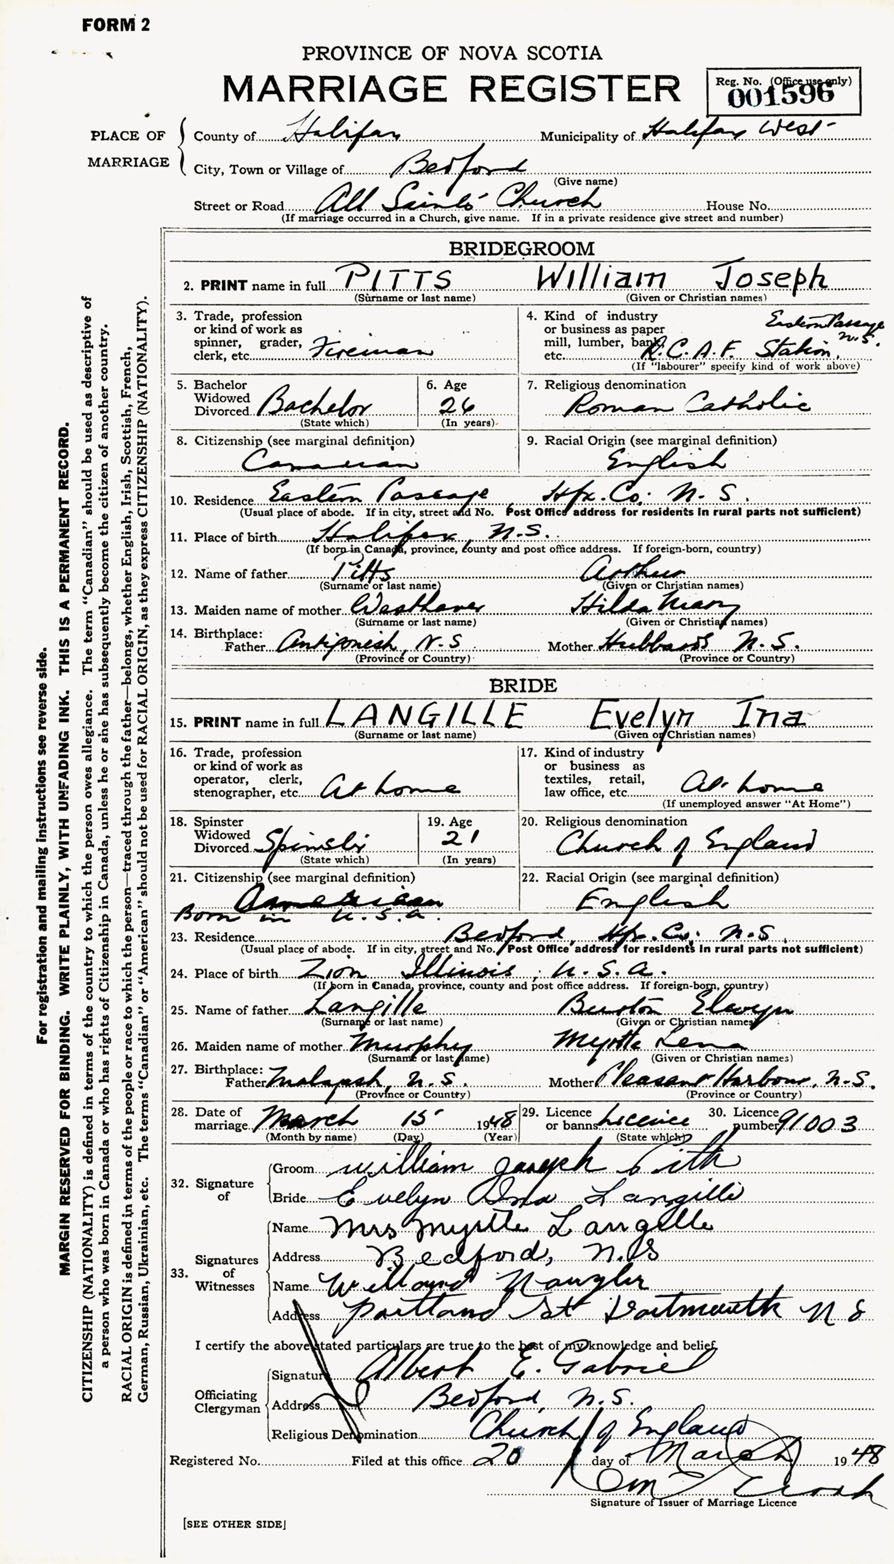 FORM 2
PROVINCE OF NOVA SCOTIA
MARRIAGE REGISTER
Reg. No. (Office use only)
001596
PLACE OF MARRIAGE
County of Halifax Municipality of Halifax West
City, Town or Village of Bedford
(Give name)
Street or Road All Saints Church House No.
(If marriage occurred in a Church, give name. If in a private residence give street and number)
BRIDEGROOM
2. PRINT name in full PITTS William Joseph
(Surname or last name) (Given or Christian names)
3. Trade, profession or kind of work as spinner, grader, clerk, etc. Fireman
4. Kind of industry or business as paper mill, lumber, bank, etc. R.C.A.F. Station, Eastern Passage N.S.
(If "labourer" specify kind of work above)
5. Bachelor Widowed Divorced Bachelor
(State which)
6. Age 26
(In years)
7. Religious denomination Roman Catholic
8. Citizenship (see marginal definition) Canadian
9. Racial Origin (see marginal definition) English
10. Residence Eastern Passage, Hfx. Co. N.S.
(Usual place of abode. If in city, street and No. Post Office address for residents in rural parts not sufficient)
11. Place of birth Halifax, N.S.
(If born in Canada, province, county and post office address. If foreign-born, country)
12. Name of father Pitts Arthur
(Surname or last name) (Given or Christian names)
13. Maiden name of mother Westhaver Hilda Mary
(Surname or last name) (Given or Christian names)
14. Birthplace: Father Antigonish, N.S Mother Hubbards N.S.
(Province or Country) (Province or Country)
BRIDE
15. PRINT name in full LANGILLE Evelyn Ina
(Surname or last name) (Given or Christian names)
16. Trade, profession or kind of work as operator, clerk, stenographer, etc. At home
17. Kind of industry or business as textiles, retail, law office, etc. At home
(If unemployed answer "At Home")
18. Spinster Widowed Divorced Spinster
(State which)
19. Age 21
(In years)
20. Religious denomination Church of England
21. Citizenship (see marginal definition) American
Born in U.S.A.
22. Racial Origin (see marginal definition) English
23. Residence Bedford, Hfx. Co. N.S.
(Usual place of abode. If in city, street and No. Post Office address for residents in rural parts not sufficient)
24. Place of birth Zion Illinois, U.S.A.
(If born in Canada, province, county and post office address. If foreign-born, country)
25. Name of father Langille Burton Elwyn
(Surname or last name) (Given or Christian names)
26. Maiden name of mother Murphy Myrtle Lena
(Surname or last name) (Given or Christian names)
27. Birthplace: Father Malagash, N.S. Mother Pleasant Harbour, N.S.
(Province or Country) (Province or Country)
28. Date of marriage March 15 1948
(Month by name) (Day) (Year)
29. Licence or banns Licence
(State which)
30. Licence number 91003
32. Signature of
Groom William Joseph Pitts
Bride Evelyn Ina Langille
33. Signatures of Witnesses
Name Mrs Myrtle Langille
Address Bedford, N.S
Name Willard Naugler
Address Portland St Dartmouth N S
I certify the above stated particulars are true to the best of my knowledge and belief.
Officiating Clergyman
Signature Albert E. Gabriel
Address Bedford, N.S.
Religious Denomination Church of England
Registered No. Filed at this office 20 day of March 1948
Signature of Issuer of Marriage Licence
[SEE OTHER SIDE]
For registration and mailing instructions see reverse side.
MARGIN RESERVED FOR BINDING. WRITE PLAINLY, WITH UNFADING INK. THIS IS A PERMANENT RECORD.
CITIZENSHIP (NATIONALITY) is defined in terms of the country to which the person owes allegiance. The term "Canadian" should be used as descriptive of
a person who was born in Canada or who has rights of Citizenship in Canada, unless he or she has subsequently become the citizen of another country.
RACIAL ORIGIN is defined in terms of the people or race to which the person—traced through the father—belongs, whether English, Irish, Scottish, French,
German, Russian, Ukrainian, etc. The terms "Canadian" or "American" should not be used for RACIAL ORIGIN, as they express CITIZENSHIP (NATIONALITY).